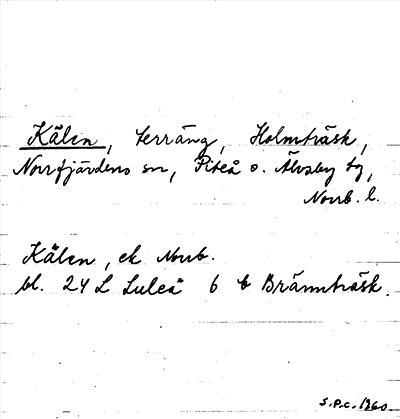 Kälen, terräng, Holmträsk,
Norrfjärdens sn, Piteå o. Älvsby tg,
Norrb. l.
Kälen, ek Norrb.
bl. 24 L Luleå 6 b Brännträsk.
S.P.C. 1960